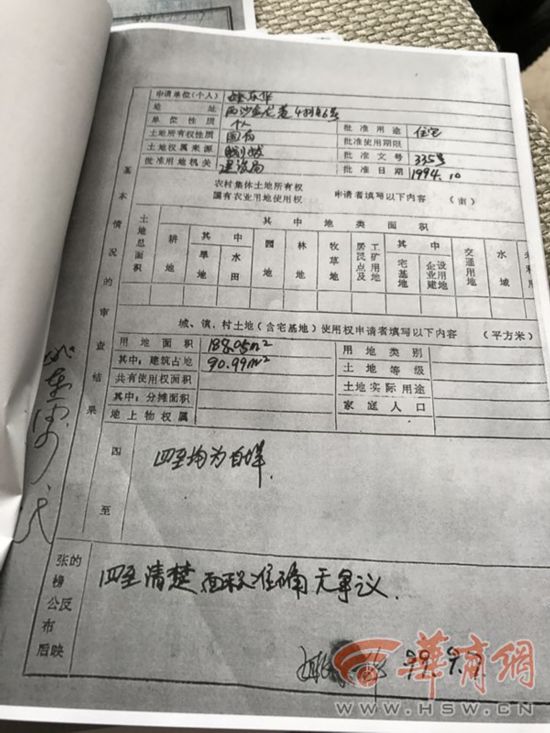 申请单位(个人)
地 址 西沙
单位性质 个人 批准用途 住宅
土地所有权性质 国有 批准使用期限
土地权属来源 批准文号 335号
批准用地机关 建设局 批准日期 1994.10
农村集体土地所有权
国有农业用地使用权 申请者填写以下内容 (亩)
基本情况的审查结果
土地总面积 其中地类面积
耕地 其中 园地 林地 牧草地 居民点及工矿用地 其中 交通用地 水域
旱地 水田 宅基地 企业建设用地
城、镇、村土地(含宅基地)使用权申请者填写以下内容 (平方米)
用地面积 188.05m² 用地类别
其中:建筑占地 90.99m² 土地等级
共有使用权面积 土地实际用途
其中:分摊面积 家庭人口
地上物权属
四至 四至均为自墙.
张榜公布后的反映 四至清楚 面积准确 无争议.
99.9.7
華商網
WWW.HSW.CN